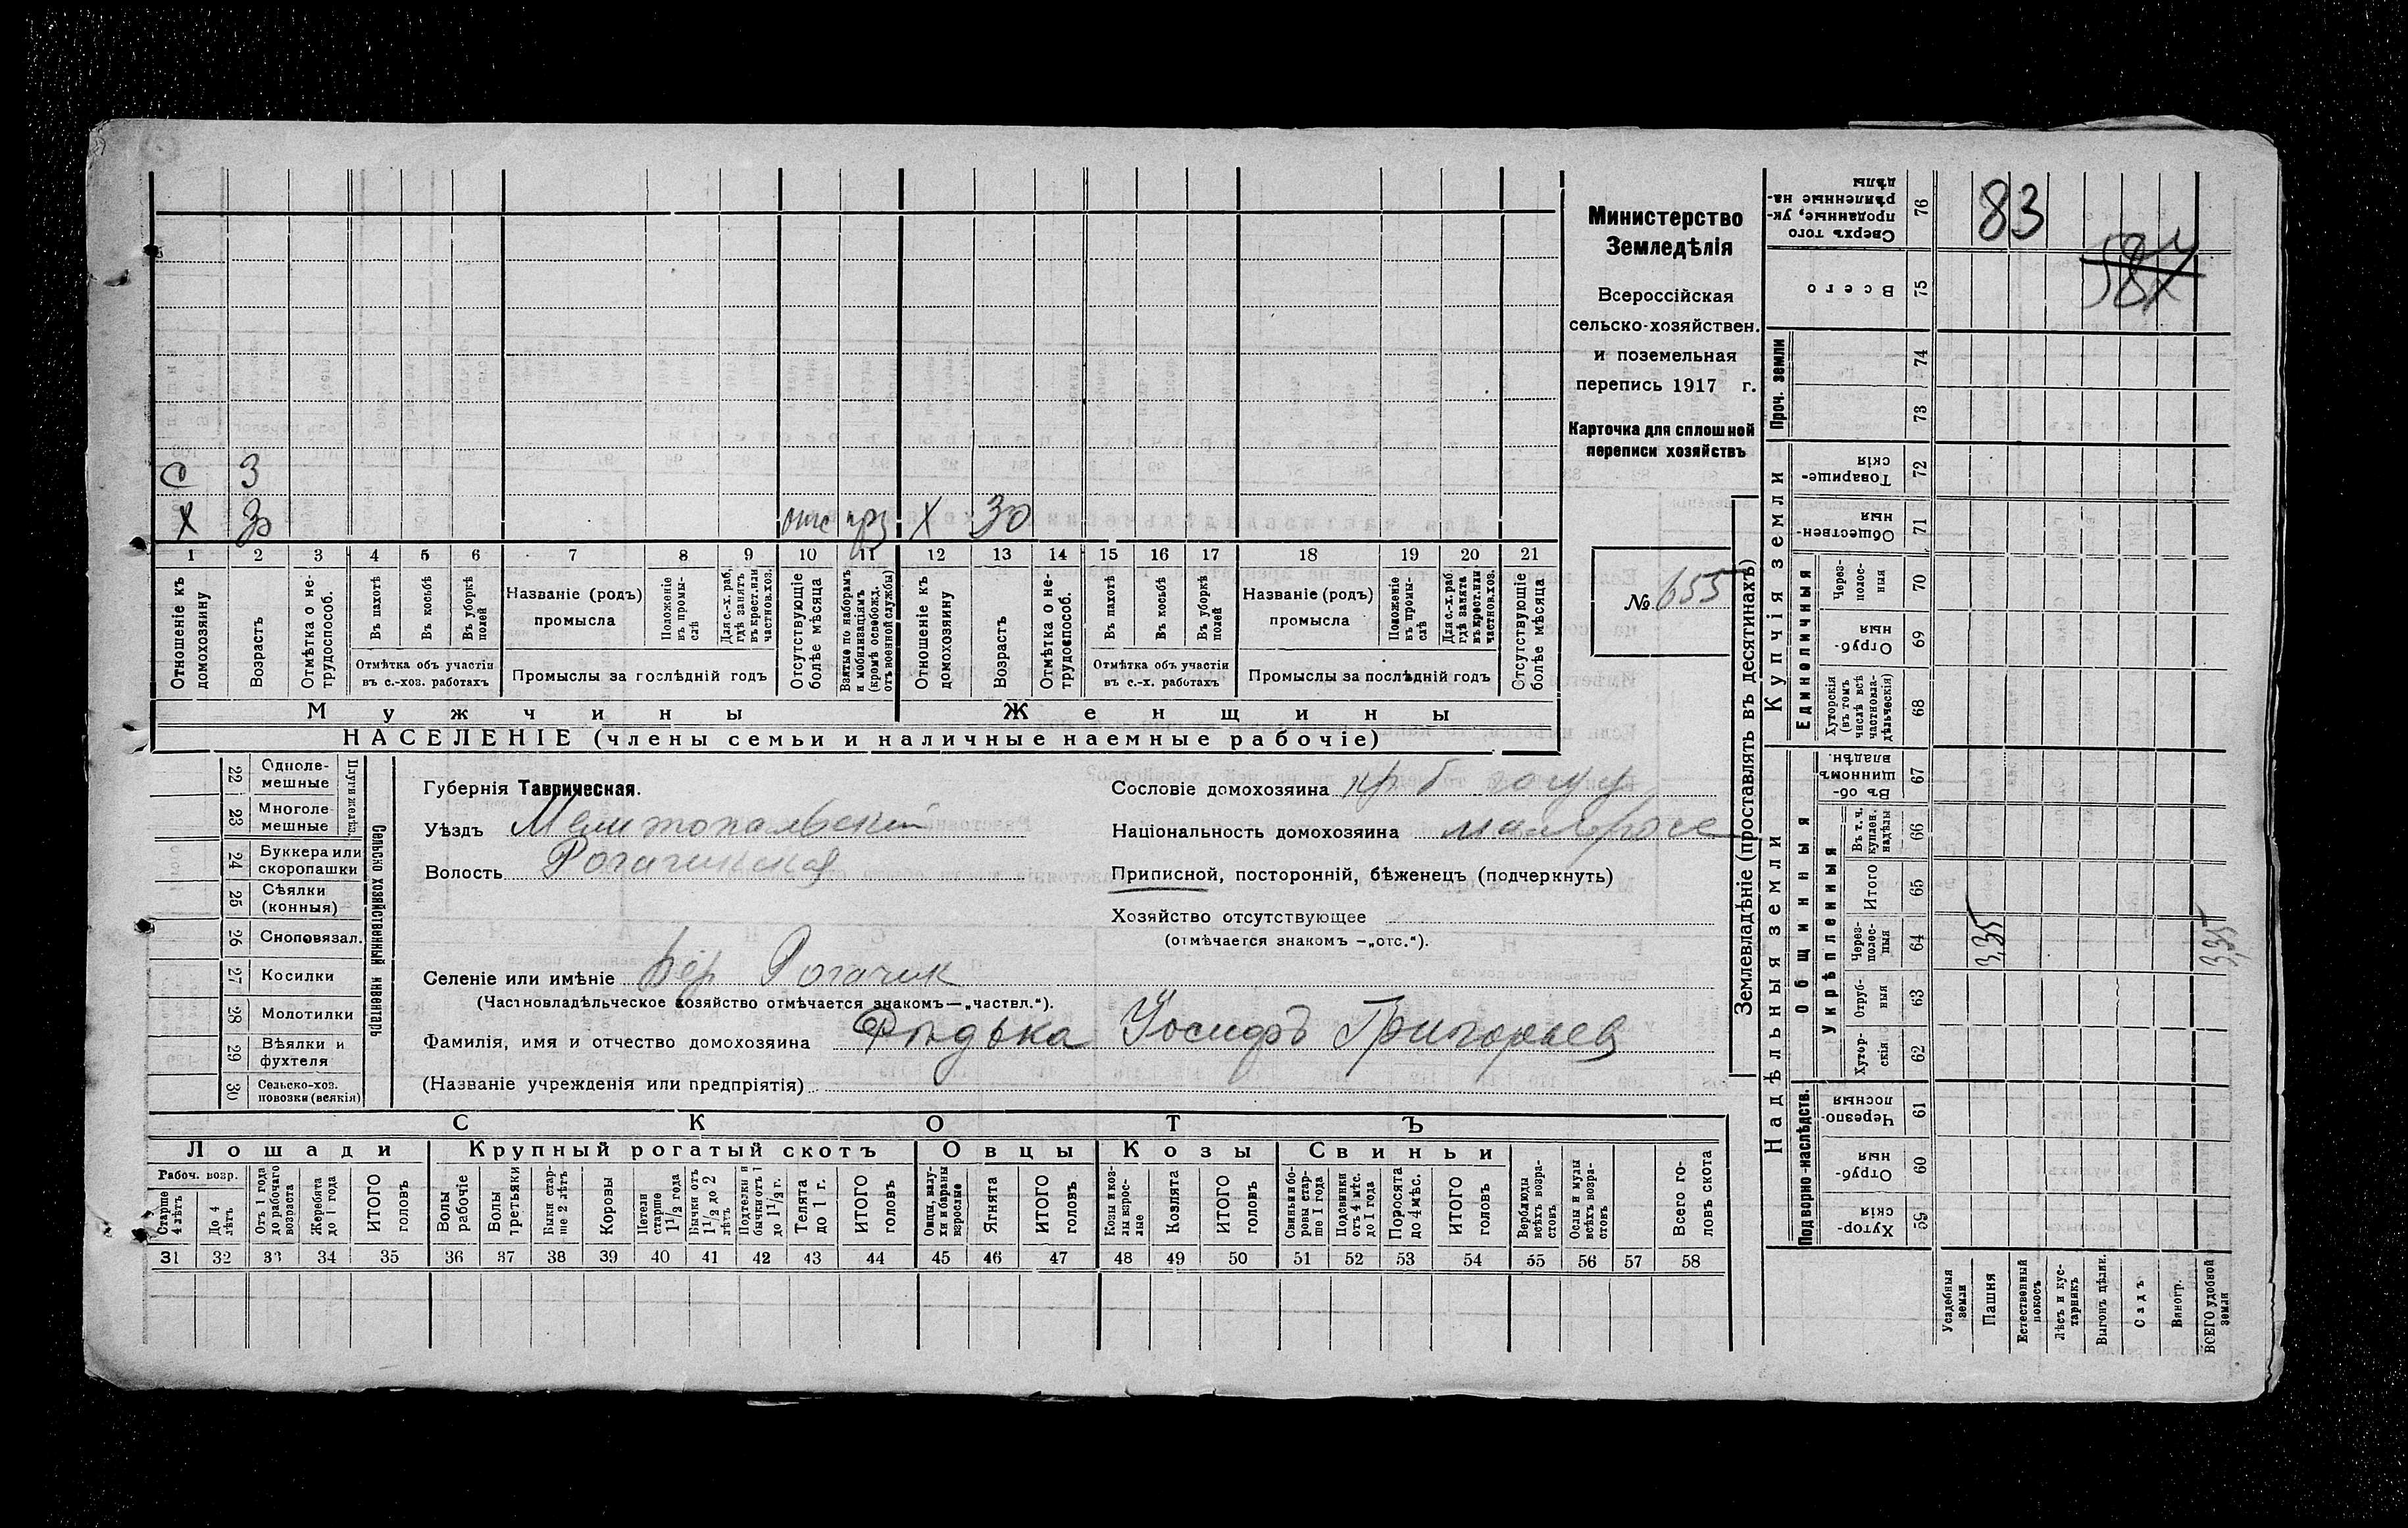 83
584
с 3
х 30 отс прз х 30
1 2 3 4 5 6 7 8 9 10 11 12 13 14 15 16 17 18 19 20 21
Отношеніе къ домохозяину
Возрастъ
Отмѣтка о не-трудоспособ.
Въ пахотѣ
Въ косьбѣ
Въ уборкѣ полей
Отмѣтка объ участіи въ с.-хоз. работахъ
Названіе (родъ) промысла
Положеніе въ промы-слѣ
Для с.-х. раб, гдѣ занятъ въ крест. или частнов. хоз.
Промыслы за послѣдній годъ
Отсутствующіе болѣе мѣсяца
Взятые по наборамъ и мобилизаціямъ (кромѣ освобожд. отъ военной службы)
Отношеніе къ домохозяину
Возрастъ
Отмѣтка о не-трудоспособ.
Въ пахотѣ
Въ косьбѣ
Въ уборкѣ полей
Отмѣтка объ участіи въ с.-х. работахъ
Названіе (родъ) промысла
Положеніе въ промы-слѣ
Для с.-х. раб гдѣ занята въ крест. или частнов. хоз.
Промыслы за послѣдній годъ
Отсутствующіе болѣе мѣсяца
Мужчины Женщины
НАСЕЛЕНІЕ (члены семьи и наличные наемные рабочіе)
Министерство
Земледѣлія
Всероссійская
сельско-хозяйствен.
и поземельная
перепись 1917 г.
Карточка для сплошной
переписи хозяйствъ
№ 655
22 Одноле-мешные
23 Многоле-мешные
Плуги желѣз.
24 Буккера или скоропашки
25 Сѣялки (конныя)
26 Сноповязал.
27 Косилки
28 Молотилки
29 Вѣялки и фухтеля
30 Сельско-хоз. повозки (всякія)
Сельско хозяйственный инвентарь
Губернія Таврическая.
Уѣздъ Мелитопольскій
Волость Рогачикская
Селеніе или имѣніе Вер Рогачик
(Частновладѣльческое хозяйство отмѣчается знакомъ—„частвл.“).
Фамилія, имя и отчество домохозяина Фыдька Іосифъ Григорьев
(Названіе учрежденія или предпріятія)
Сословіе домохозяина кр. б
Національность домохозяина малоросс
Приписной, посторонній, бѣженецъ (подчеркнуть)
Хозяйство отсутствующее
(отмѣчается знакомъ —„отс.“).
СКОТЪ
Лошади Крупный рогатый скотъ Овцы Козы Свиньи
Рабоч. возр.
Старше 4 лѣтъ
До 4 лѣтъ
Отъ 1 года до рабочаго возраста
Жеребята до 1 года
ИТОГО головъ
Волы рабочіе
Волы третьяки
Быки стар-ше 2 лѣтъ
Коровы
Нетели старше 1 1/2 года
Бычки отъ 1 1/2 до 2 лѣтъ
Подтелки и бычки отъ 1 до 1 1/2 г.
Телята до 1 г.
ИТОГО головъ
Овцы, валу-хи и бараны взрослые
Ягнята
ИТОГО головъ
Козы и коз-лы взрос-лые
Козлята
ИТОГО головъ
Свиньи и бо-ровы стар-ше 1 года
Подсвинки отъ 4 мѣс. до 1 года
Поросята до 4 мѣс.
ИТОГО головъ
Верблюды всѣхъ возра-стовъ
Ослы и мулы всѣхъ возра-стовъ
Всего го-ловъ скота
31 32 33 34 35 36 37 38 39 40 41 42 43 44 45 46 47 48 49 50 51 52 53 54 55 56 57 58
Землевладѣніе (проставлять въ десятинахъ)
Сверхъ того проданные, ук-рѣпленные на-дѣлы 76
Всего 75
Проч. земли 74 73
Купчія земли
Товарище-скія 72
Обществен-ныя 71
Единоличныя
Через-полос-ныя 70
Отруб-ныя 69
Хуторскія (въ томъ числѣ всѣ частновла-дѣльческія) 68
Надѣльныя земли
Общинныя
Въ об-щинномъ владѣн. 67
Укрѣпленныя
Въ т. ч. куплен. надѣлы 66
Итого 65
Через-полос-ныя 64 3,35 3,35
Отруб-ныя 63
Хутор-скія 62
Подворно-наслѣдств.
Черезпо-лосныя 61
Отруб-ныя 60
Хутор-скія 59
Усадебныя земли
Пашня
Естественный покосъ
Лѣсъ и кус-тарникъ
Выгонъ дѣлик.
Садъ
Виногр.
ВСЕГО удобной земли